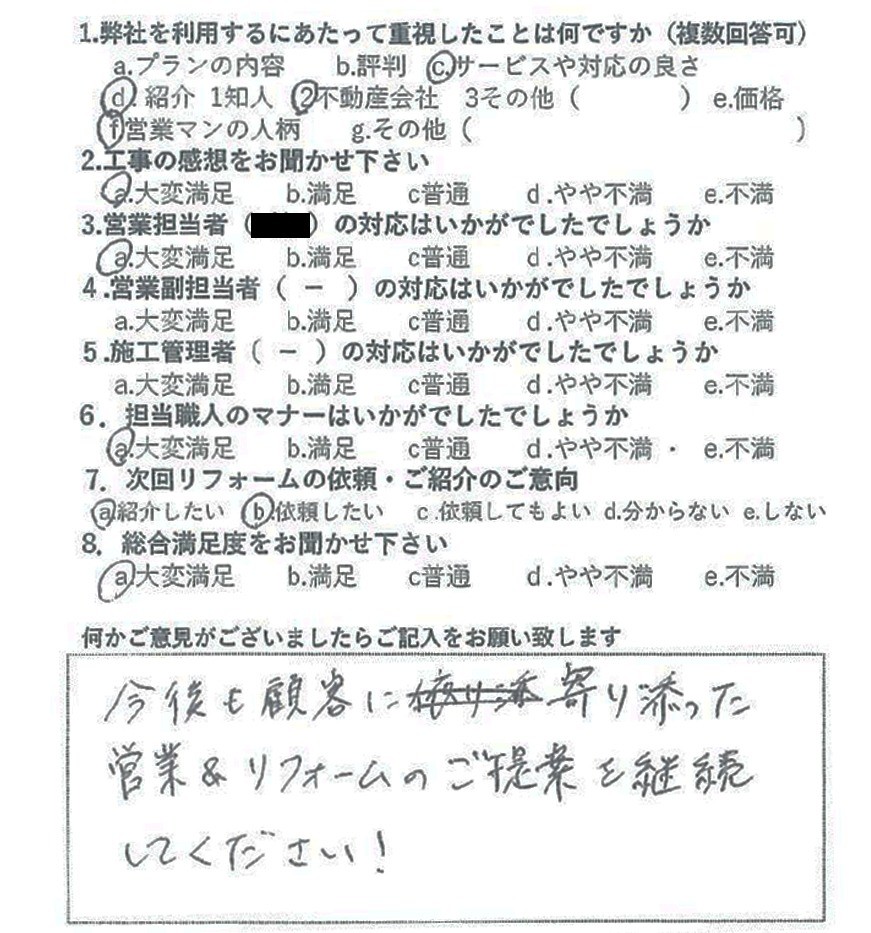 1.弊社を利用するにあたって重視したことは何ですか（複数回答可）
a.プランの内容　b.評判　c.サービスや対応の良さ
d.紹介　1知人　2不動産会社　3その他（　　　）e.価格
f営業マンの人柄　g.その他（　　　　　　　）
2.工事の感想をお聞かせ下さい
a.大変満足　b.満足　c普通　d.やや不満　e.不満
3.営業担当者（　　）の対応はいかがでしたでしょうか
a.大変満足　b.満足　c普通　d.やや不満　e.不満
4.営業副担当者（ － ）の対応はいかがでしたでしょうか
a.大変満足　b.満足　c普通　d.やや不満　e.不満
5.施工管理者（ － ）の対応はいかがでしたでしょうか
a.大変満足　b.満足　c普通　d.やや不満　e.不満
6．担当職人のマナーはいかがでしたでしょうか
a.大変満足　b.満足　c普通　d.やや不満・e.不満
7．次回リフォームの依頼・ご紹介のご意向
a紹介したい　b.依頼したい　c.依頼してもよい d.分からない e.しない
8．総合満足度をお聞かせ下さい
a.大変満足　b.満足　c普通　d.やや不満　e.不満
何かご意見がございましたらご記入をお願い致します
今後も顧客に寄り添った
営業&リフォームのご提案を継続
してください！